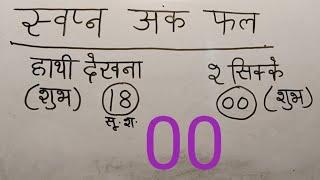 स्वप्न अंक फल
हाथी देखना
(शुभ) 18
सू. श.
२ सिक्के
00 (शुभ)
00